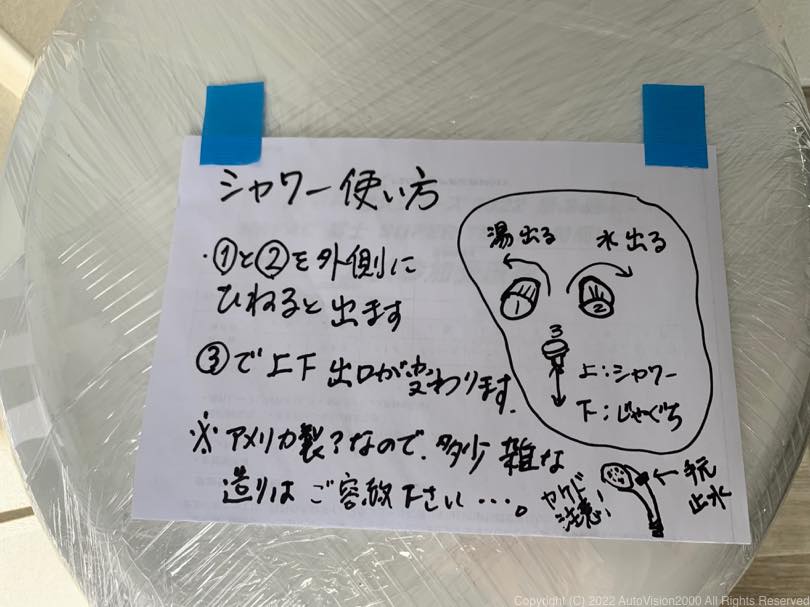 シャワー使い方
・①と②を外側に
ひねると出ます
③で上下出口が変わります.
※アメリカ製?なので、多少雑な
造りはご容赦下さい…。
湯出る
水出る
1
2
3
上:シャワー
下:じゃぐち
ヤケド
注意!
←手元
止水
Copyright (C) 2022 AutoVision2000 All Rights Reserved